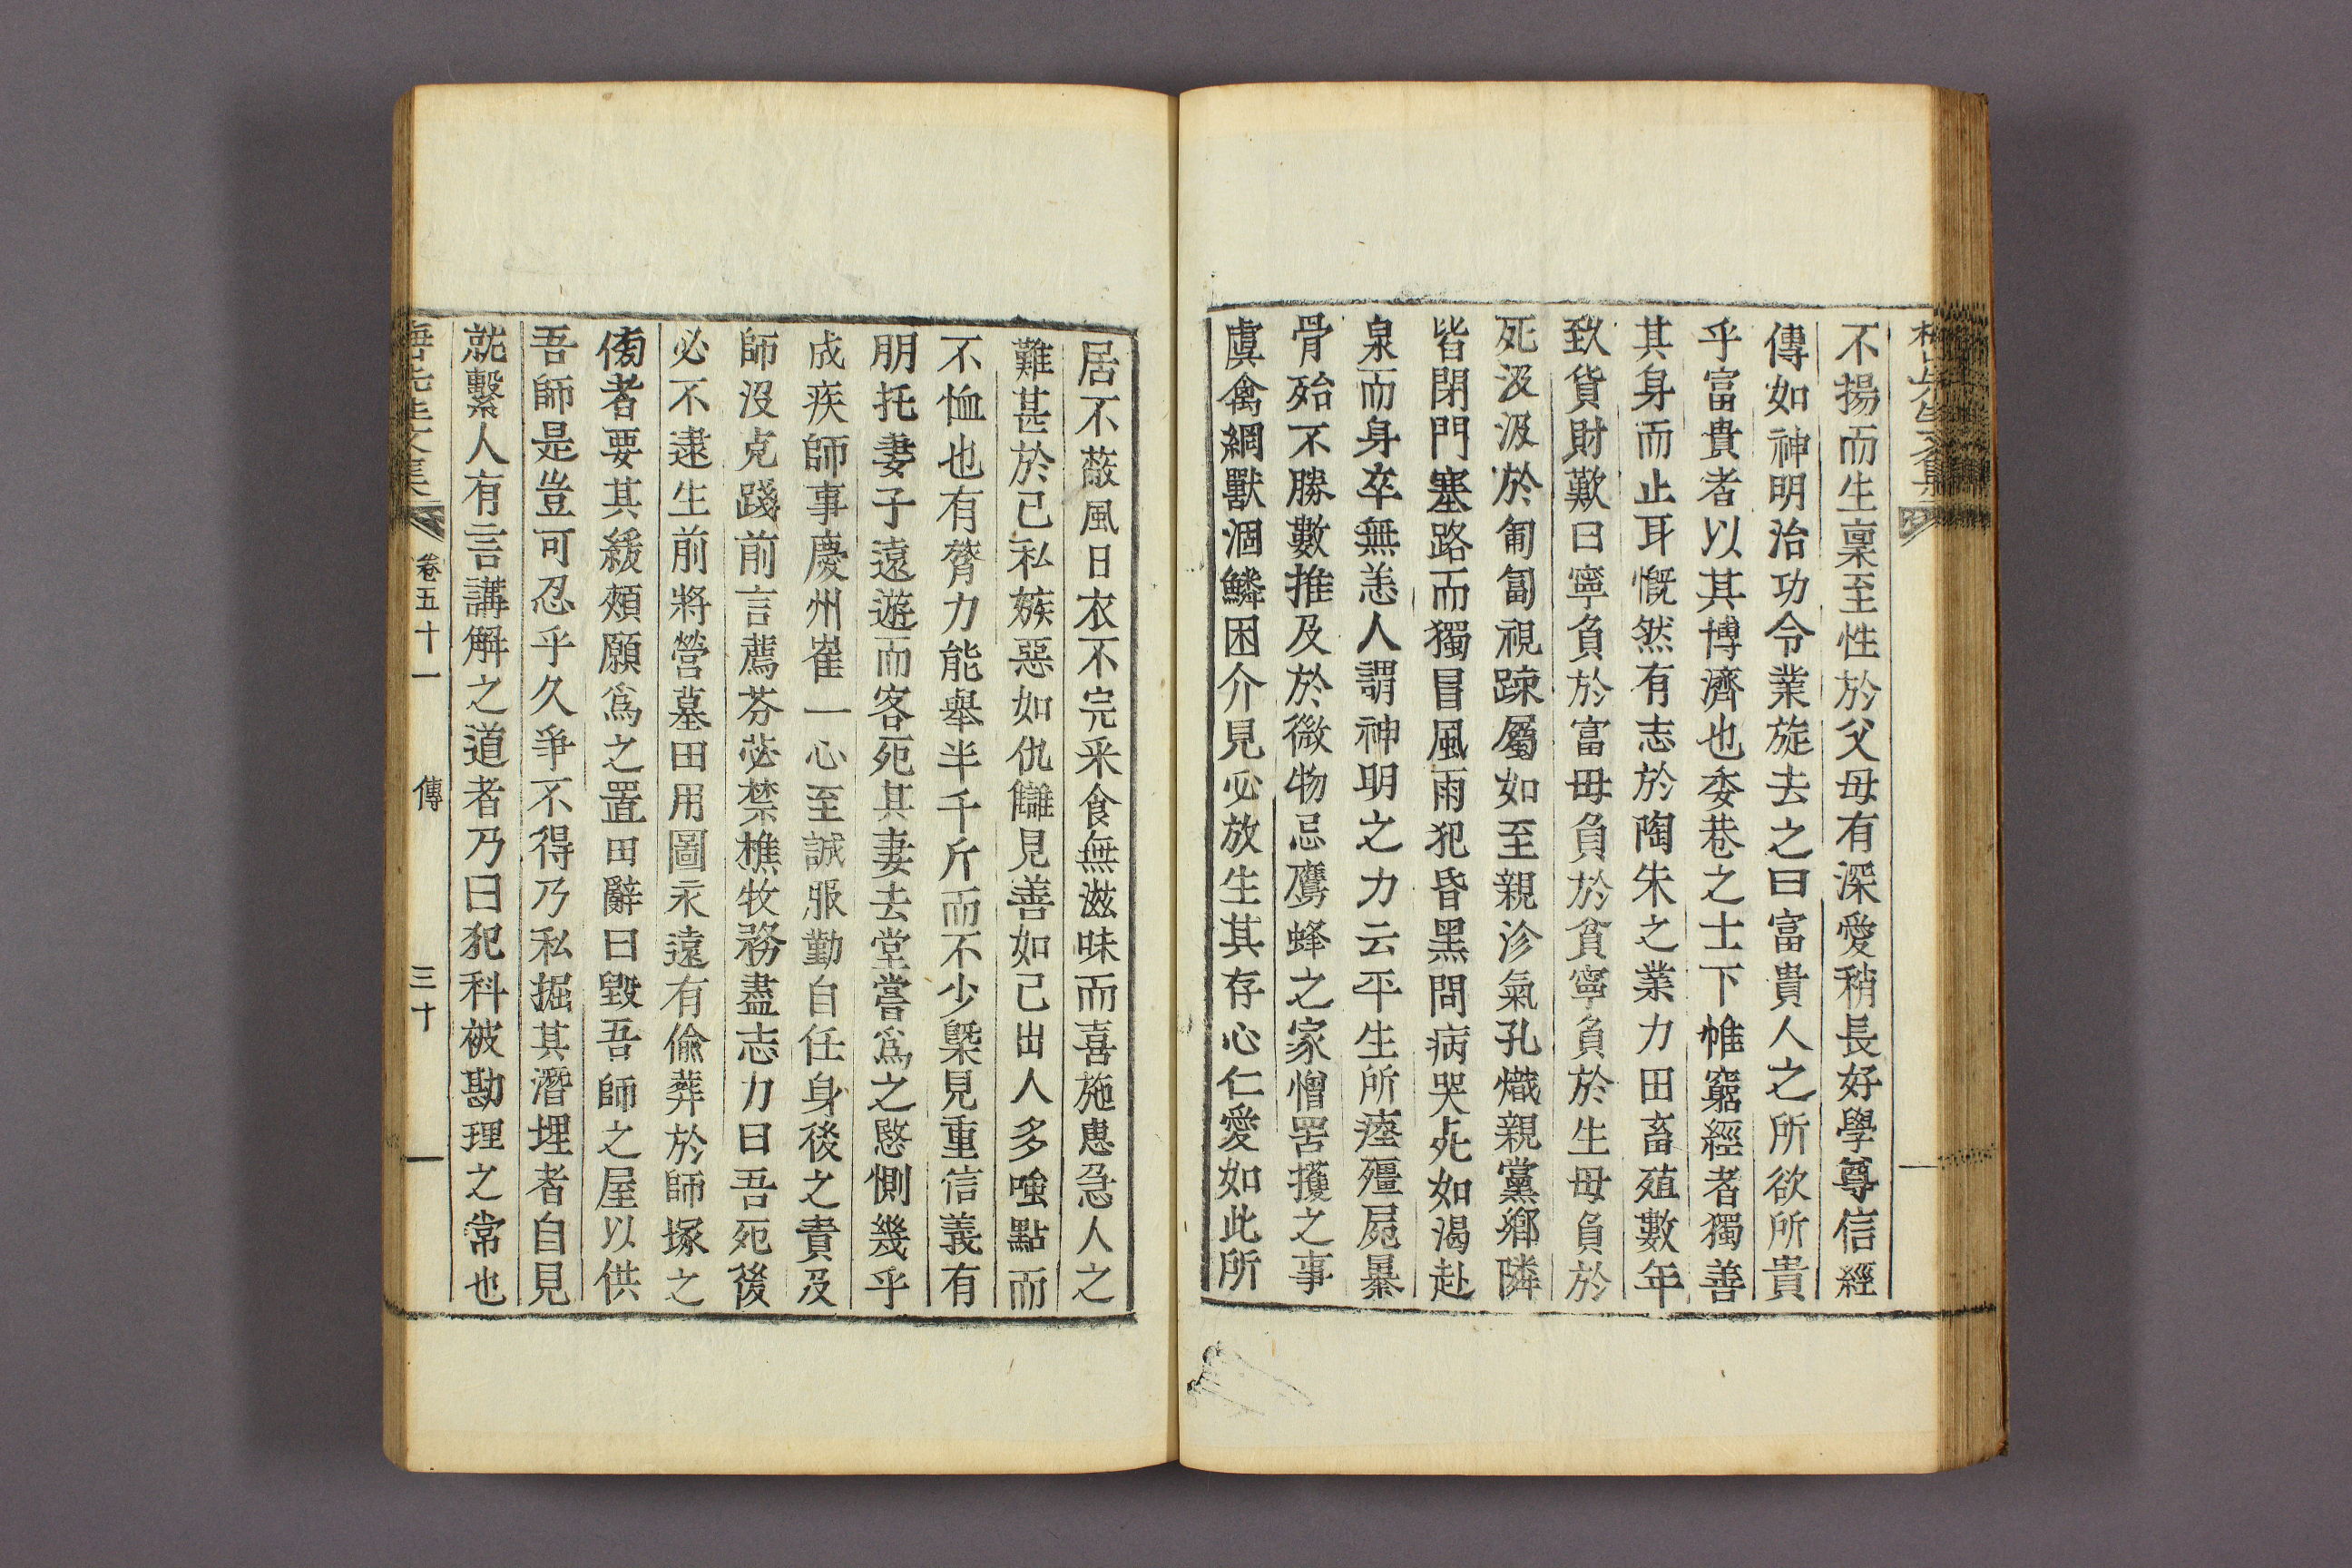 不揚而生稟至性於父母有深愛稍長好學尊信經
傳如神明治功令業旋去之曰富貴人之所欲所貴
乎富貴者以其博濟也委巷之士下帷窮經者獨善
其身而止耳慨然有志於陶朱之業力田畜殖數年
致貨財歎曰寧負於富毋負於貧寧負於生毋負於
死汲汲於匍匐視踈屬如至親沴氣孔熾親黨鄉隣
皆閉門塞路而獨冒風雨犯昏黑問病哭死如渴赴
泉而身卒無恙人謂神明之力云平生所瘞殭屍暴
骨殆不勝數推及於微物忌鷹蜂之家憎罟擭之事
虞禽網獸涸鱗困介見必放生其存心仁愛如此所
居不蔽風日衣不完采食無滋味而喜施惠急人之
難甚於己私嫉惡如仇讎見善如己出人多嗤點而
不恤也有膂力能舉半千斤而不少槩見重信義有
朋托妻子遠遊而客死其妻去堂嘗爲之愍惻幾乎
成疾師事慶州崔一心至誠服勤自任身後之責及
師沒克踐前言薦芬苾禁樵牧務盡志力曰吾死後
必不逮生前將營墓田用圖永遠有偸葬於師塚之
傍者要其緩頰願爲之置田辭曰毁吾師之屋以供
吾師是豈可忍乎久爭不得乃私掘其潛埋者自見
就繫人有言講解之道者乃曰犯科被勘理之常也
卷五十一 傳 三十